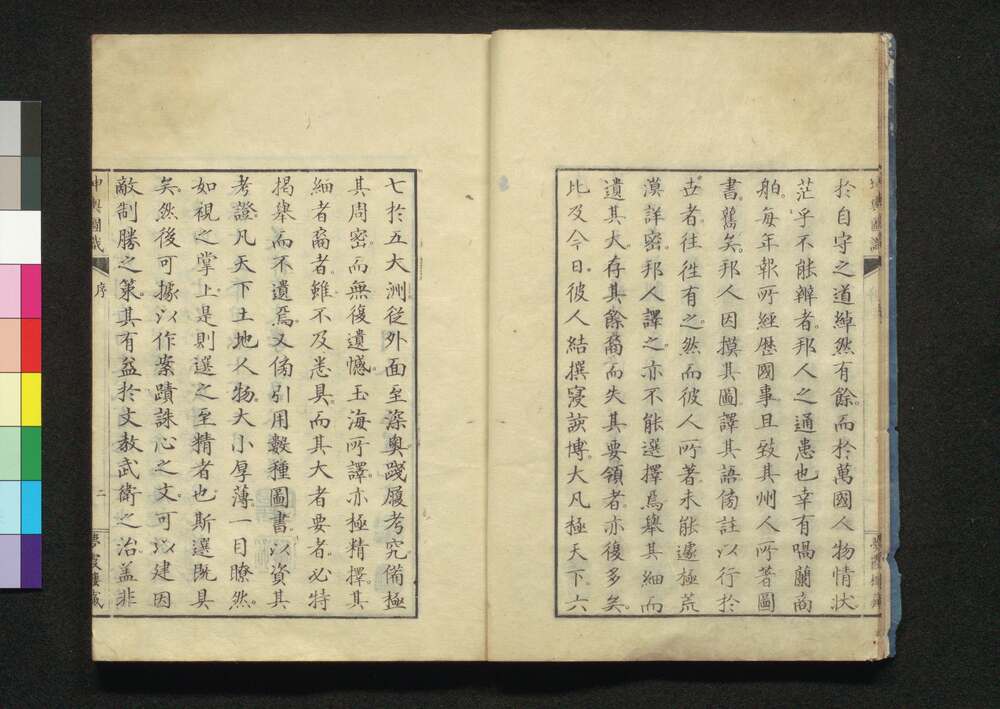 於自守之道綽然有餘而於萬國人物情狀
茫乎不能辨者邦人之通患也幸有喎蘭商
舶每年報所經歷國事且致其州人所著圖
書舊矣邦人因摸其圖譯其語傍註以行於
世者往往有之然而彼人所著未能遽極荒
漠詳密邦人譯之亦不能選擇焉舉其細而
遺其大存其餘裔而失其要領者亦復多矣
比及今日彼人結撰寖該博大凡極天下六
七於五大洲從外面至深奧踐履考究備極
其周密而無復遺憾玉海所譯亦極精擇其
細者裔者雖不及悉具而其大者要者必特
揭舉而不遺焉又傍引用數種圖書以資其
考證凡天下土地人物大小厚薄一目瞭然
如視之掌上是則選之至精者也斯選既具
矣然後可據以作案蹟誅心之文可以建因
敵制勝之策其有益於文教武衛之治蓋非
坤輿圖識
序
二
夢霞樓藏